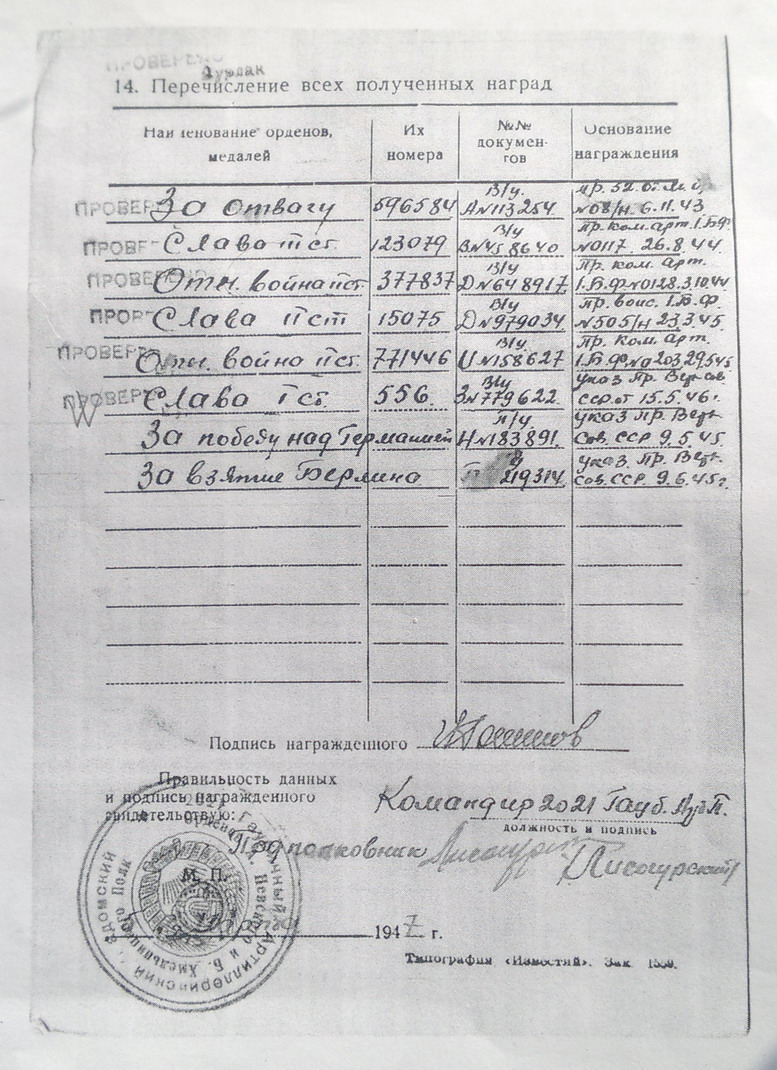 ПРОВЕРЕНО
14. Перечисление всех полученных наград
Наименование орденов, медалей
Их номера
№№ документов
Основание награждения
ПРОВЕР За отвагу 596584 В/у. А№113254 №08/н. 6.11.43
ПРОВЕР Слава III ст. 123079 В/у В№458640 Пр. ком. арт. 1.Б.Ф. №0117 26.8.44
ПРОВЕРЕНО Отч. война II ст 377837 В/у Д№648917 Пр. ком. арт. 1.Б.Ф №0128.3.10.44
ПРОВ Слава II ст 15075 В/у Д№979034 Пр. войс. 1.Б.Ф. №505/н 23.3.45
ПРОВЕР Отч. война II ст. 771446 В/у. №158627 Пр. ком. арт. 1.Б.Ф
ПРОВЕР Слава I ст. 556. В/у З№779622 Указ Пр. Верх. Сов. ССР от 15.5.46г.
За победу над Германией П/у Н№183891. Указ Пр. Верх. Сов. ССР 9.5.45
За взятие Берлина 219314 Указ. Пр. Верх. Сов. ССР 9.6.45г.
Подпись награжденного
Правильность данных
и подпись награжденного
свидетельствую:
Командир 2021 Гауб. Арт. П.
должность и подпись
Подполковник Лисогурский
М. П.
1947 г.
Типография «Известий». Зак. 1559.